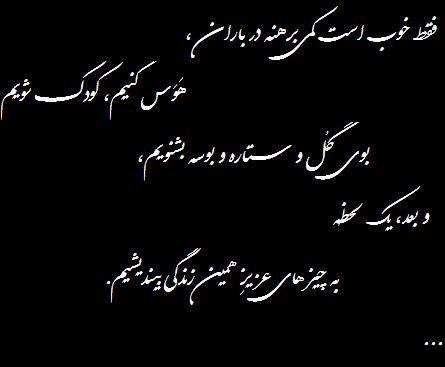 فقط خوب است کمی برهنه در باران،
هَوَس کنیم، کودک شویم
بوی گُل و ستاره و بوسه بشنویم،
و بعد، یک لحظه
به چیزهای عزیزِ همین زندگی بیندیشیم.
...